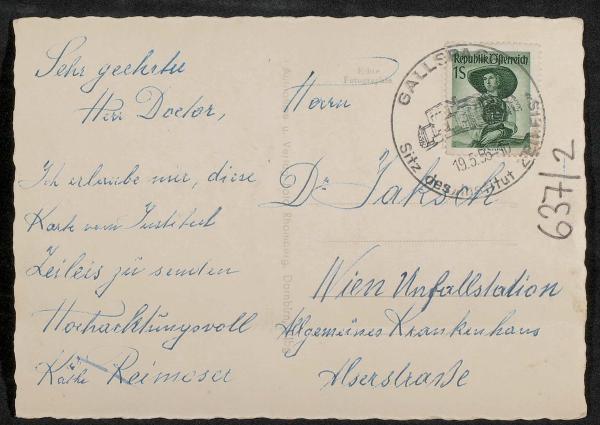 Sehr geehrter
Herr Doctor,
Ich erlaube mir, diese
Karte vom Institut
Zeileis zu senden
Hochachtungsvoll
Käthe Reimoser
Echte
Fotographie
Herrn
Dr Jaksch
Wien Unfallstation
Allgemeines Krankenhaus
Alserstraße
Republik Österreich
1S
GALLSPACH
19.5.53-10
Sitz des Institut Zeileis
637/2
Rhomberg, Dornbirn